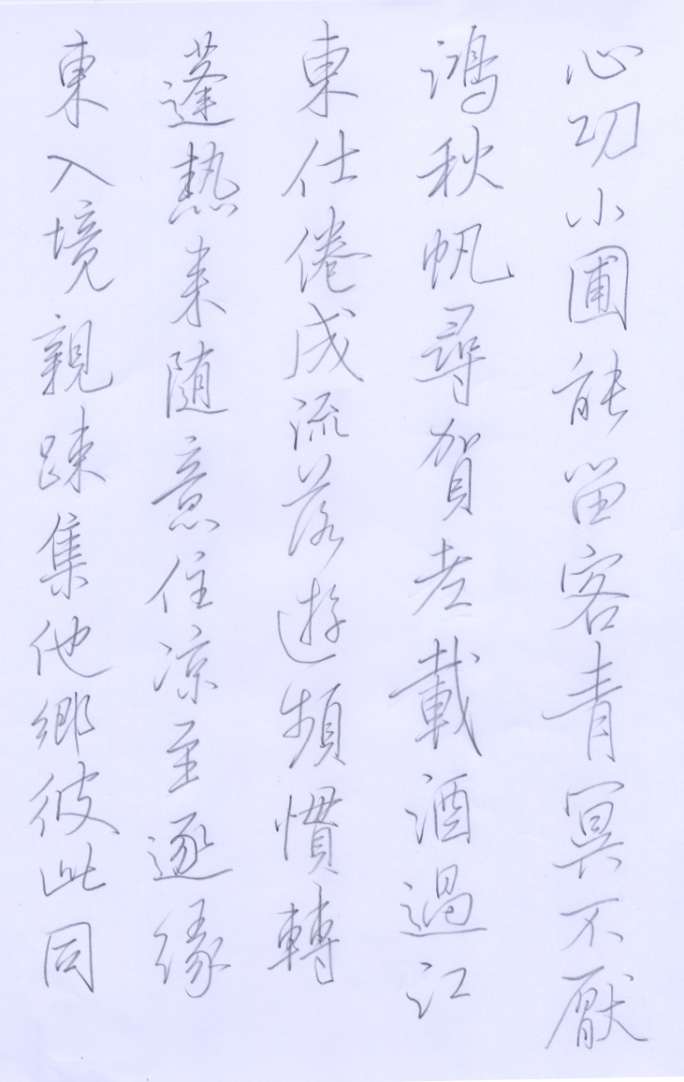 心切小圃能留客青冥不厭
鴻秋帆尋賀老載酒過江
東仕倦成流落遊頻慣轉
蓬熱来随意住凉至逐緣
東入境親踈集他鄉彼此同